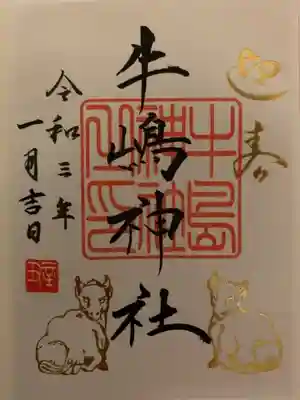 寿
牛嶋神社
牛島
神社
之印
令和三年
一月吉日